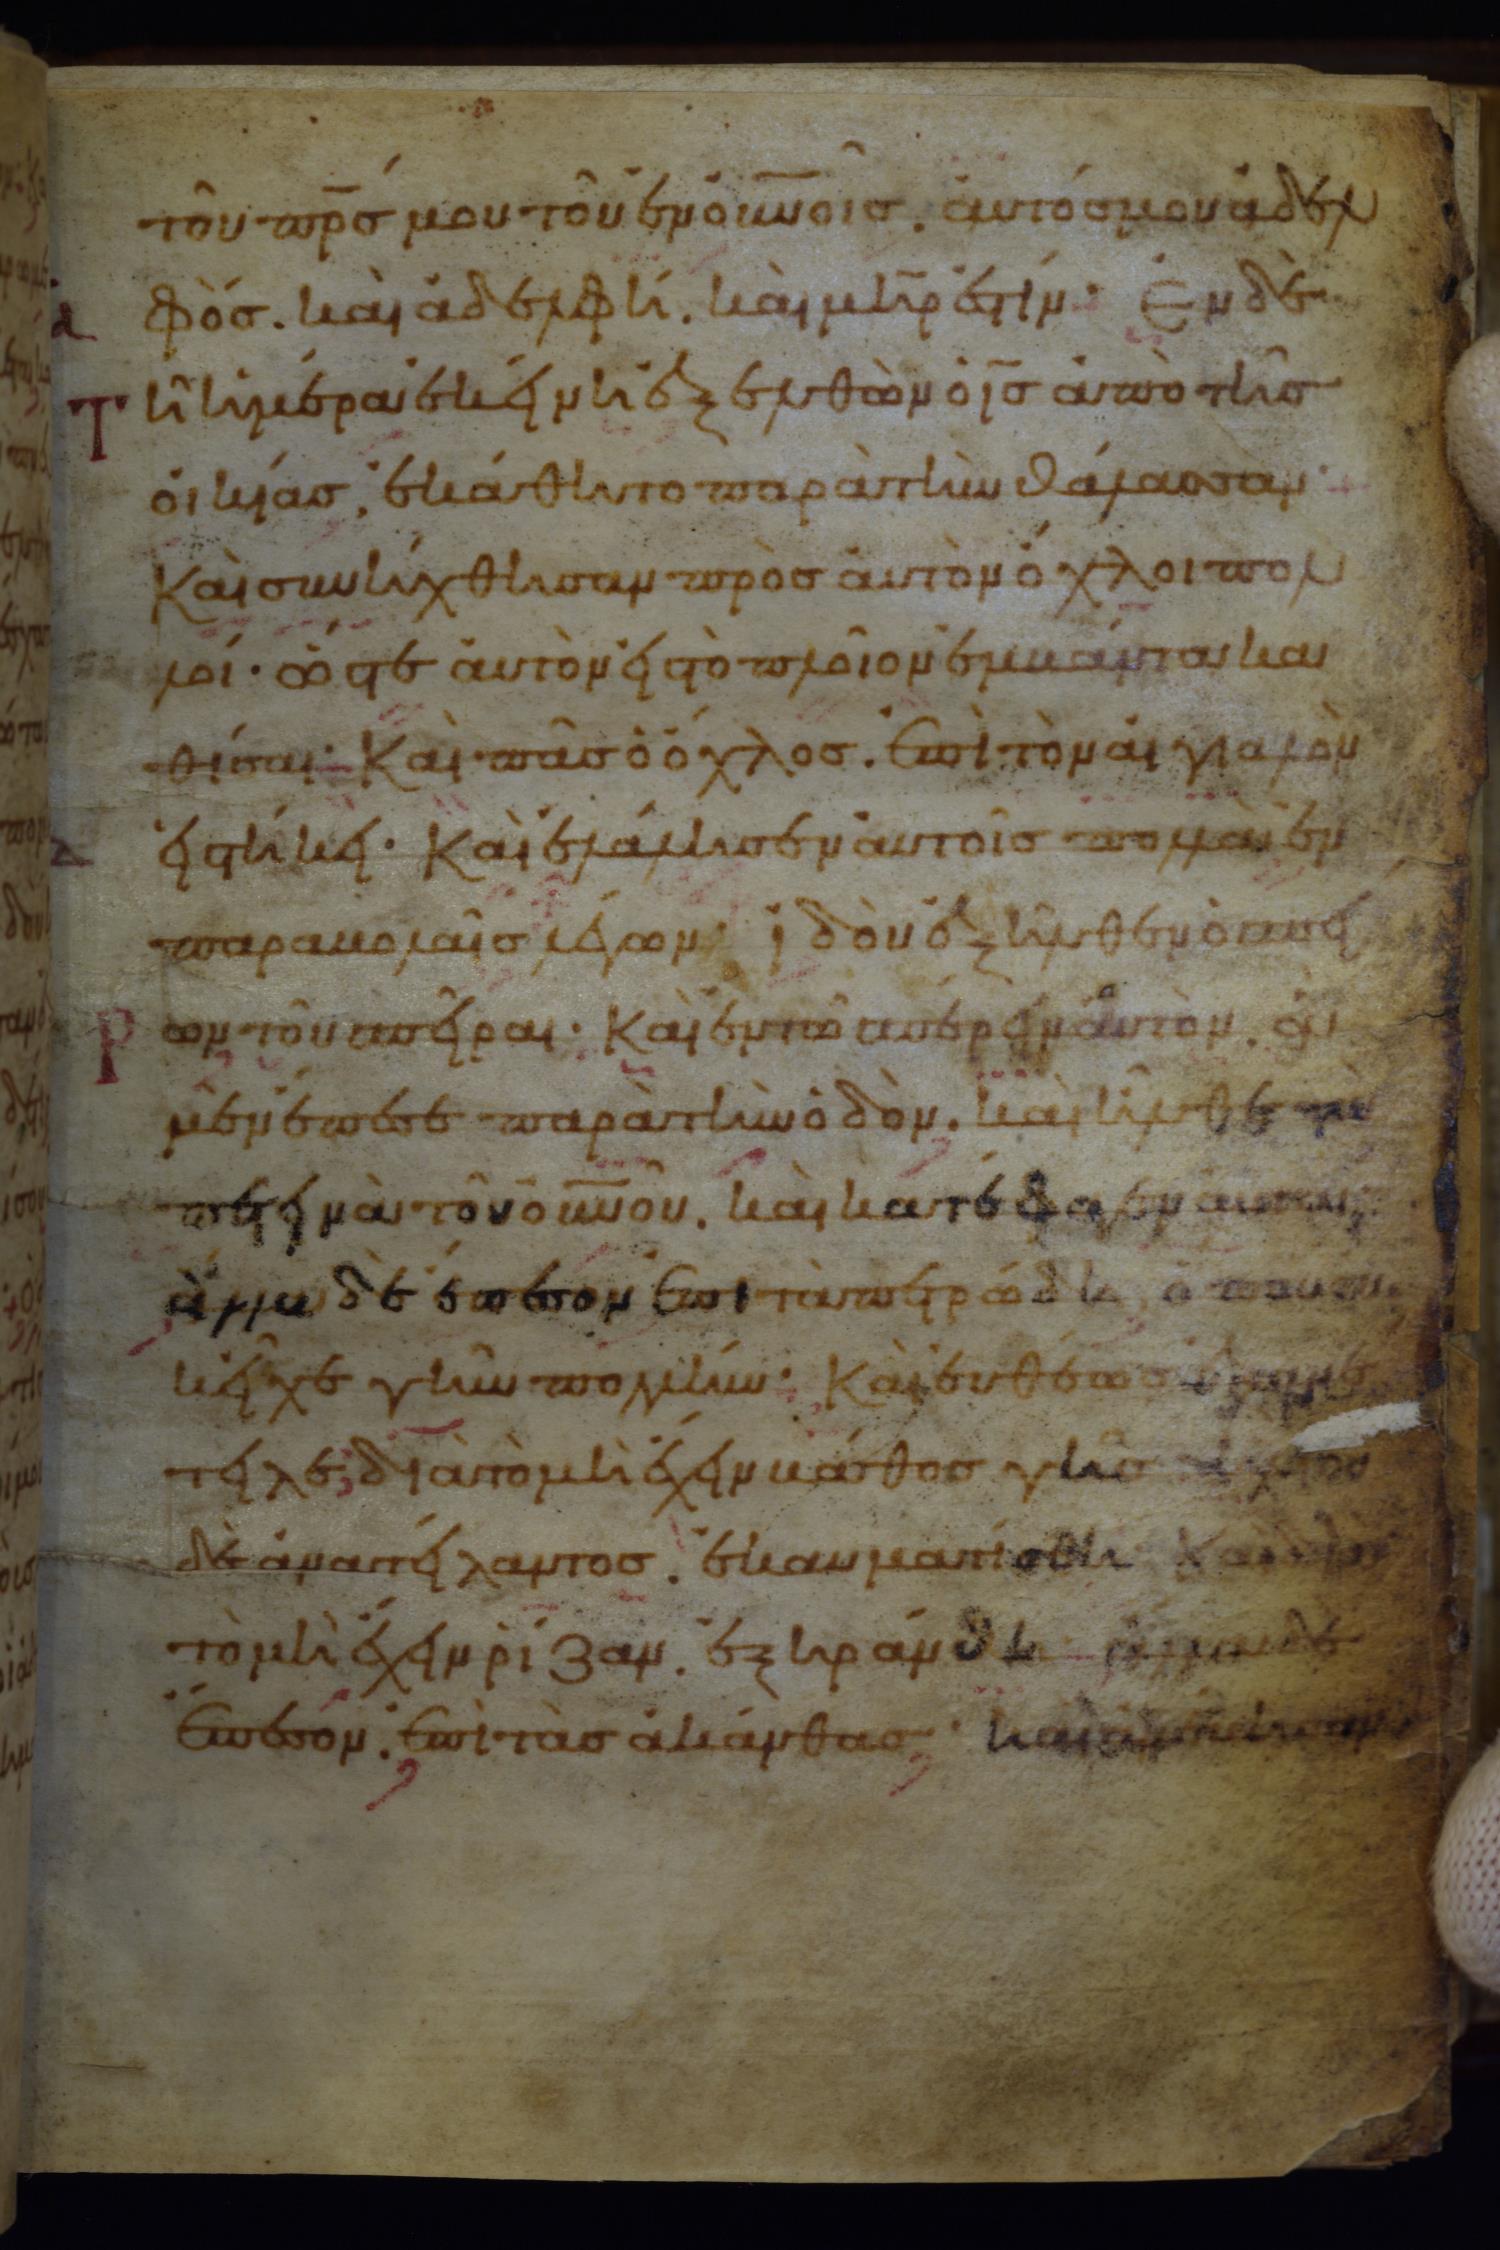 τοῦ π̅ρ̅σ̅ μου τοῦ ἐν ο̅υ̅ν̅οις. αὐτός μου ἀδελ
φὸς. καὶ ἀδελφὴ. καὶ μ̅η̅ρ̅ ἐστίν· Ἐν δὲ
Τ ῆ ἡμέρα ἐκείνη ἐξελθὼν ὁ ι̅ς̅ ἀπὸ τῆς
οἰκίας, ἐκάθητο παρὰ τὴν θάλασσαν·
Καὶ συνήχθησαν πρὸς αὐτὸν ὄχλοι πολ
λοί· ὥστε αὐτὸν εἰς τὸ πλοῖον ἐμβάντα κα
θίσαι· Καὶ πᾶς ὁ ὄχλος. ἐπὶ τὸν αἰγιαλὸν
εἱστήκει· Καὶ ἐλάλησεν αὐτοῖς πολλὰ ἐν
παραβολαῖς λέγων· ἰδοὺ ἐξῆλθεν ὁ σπεί
ρων τοῦ σπεῖραι· Καὶ ἐν τῶ σπείρειν αὐτὸν. ἃ
μὲν ἔπεσε παρὰ τὴν ὁδὸν. καὶ ἦλθε τὰ
πετεινὰ τοῦ ο̅υ̅ν̅οῦ. καὶ κατέφαγεν αὐτά·
ἄλλα δὲ ἔπεσον ἐπὶ τὰ πετρώδη, ὅπου οὐκ
εἶχε γῆν πολλήν· Καὶ εὐθέως ἐξανέ
τειλε, διὰ τὸ μὴ ἔχειν βάθος γῆς ἡλίου
δὲ ἀνατείλαντος. ἐκαυματίσθη Καὶ διὰ
τὸ μὴ ἔχειν ρίζαν. ἐξηράνθη ἄλλα δὲ
ἔπεσον. ἐπὶ τὰς ἀκάνθας· καὶ ἀνέβησαν